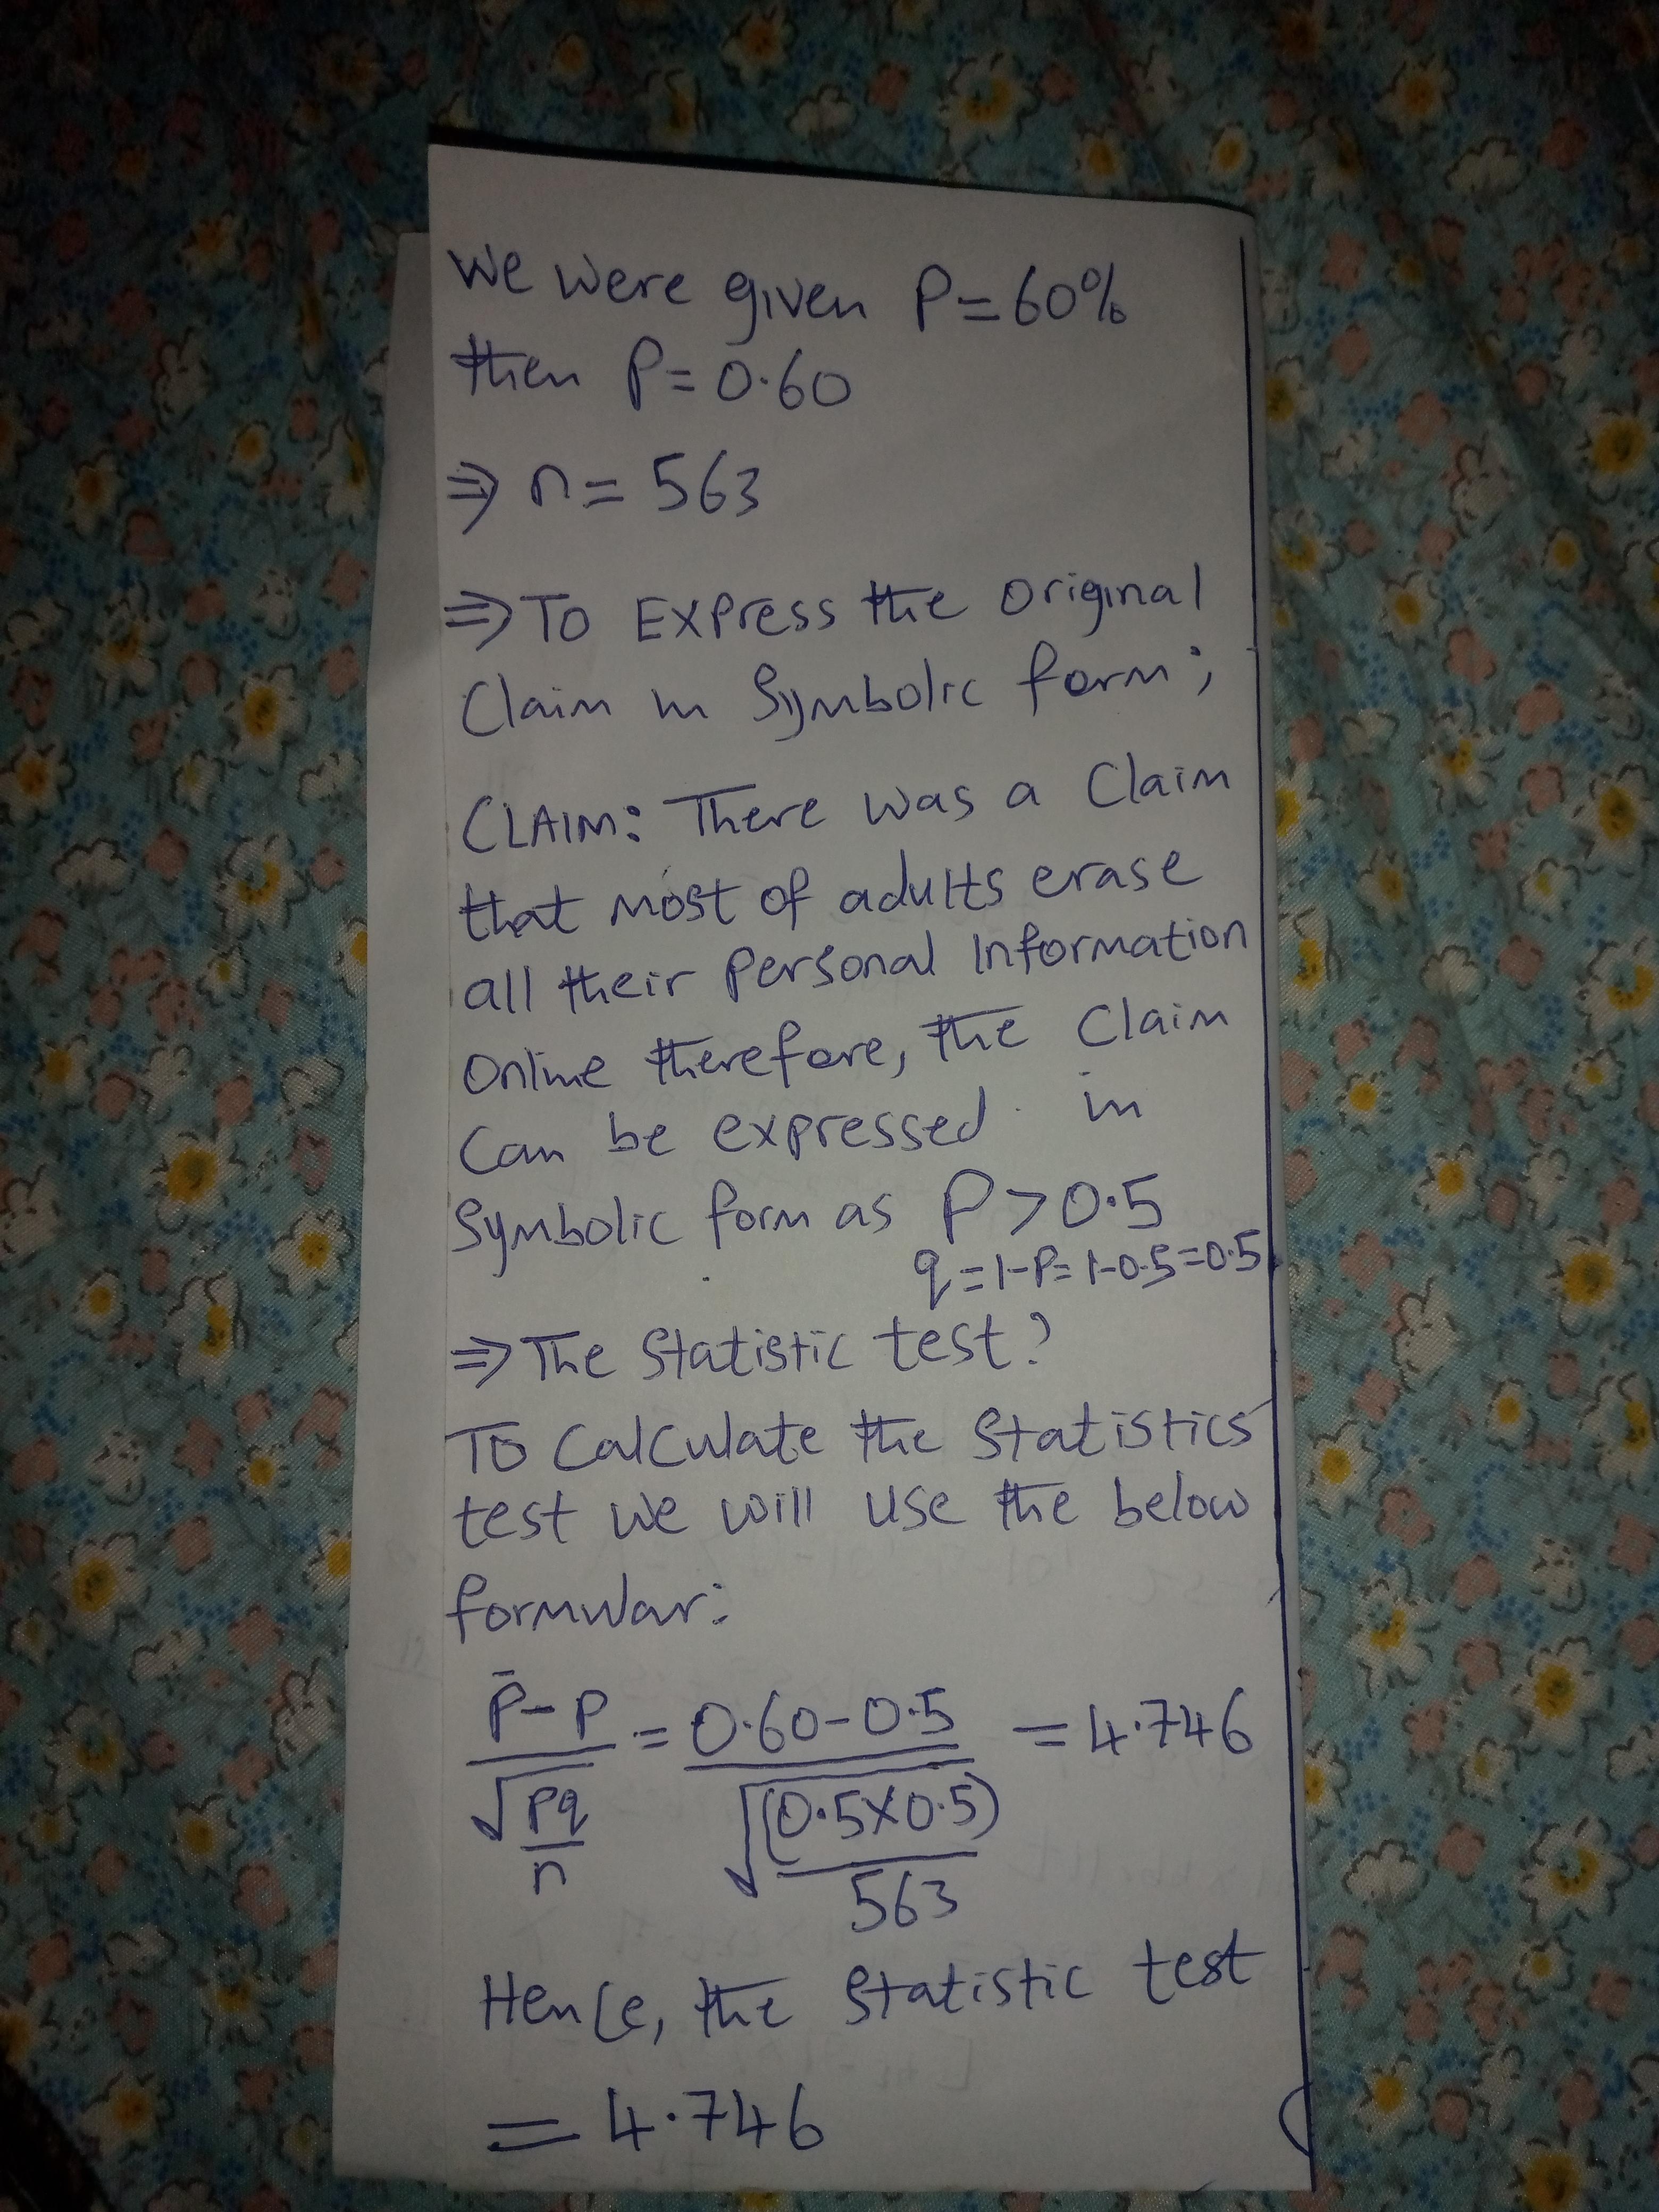 We were given P=60%
then P=0.60
⇒ n=563
⇒ To Express the original
Claim in Symbolic form;
CLAIM: There was a Claim
that most of adults erase
all their personal Information
Online therefore, the Claim
Can be expressed in
Symbolic form as P>0.5
q=1-P=1-0.5=0.5
⇒ The Statistic test?
To Calculate the Statistics
test we will use the below
formular:
P̄-P/√(pq/n) = 0.60-0.5/√((0.5×0.5)/563) = 4.746
Hence, the Statistic test
= 4.746